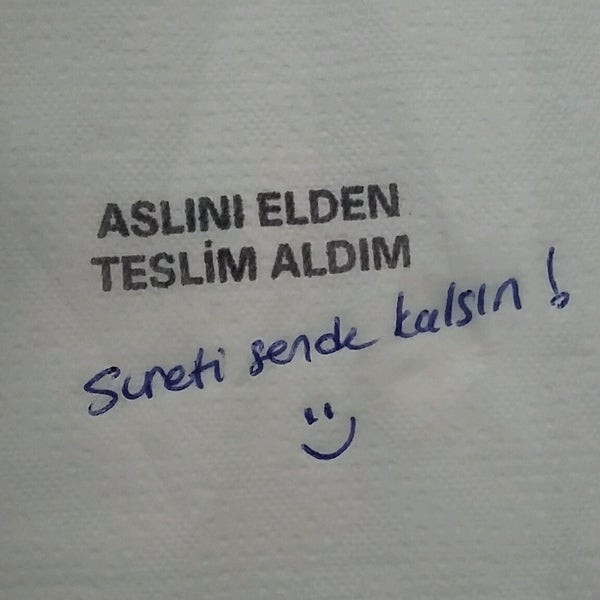 ASLINI ELDEN
TESLİM ALDIM
Sureti sende kalsın!